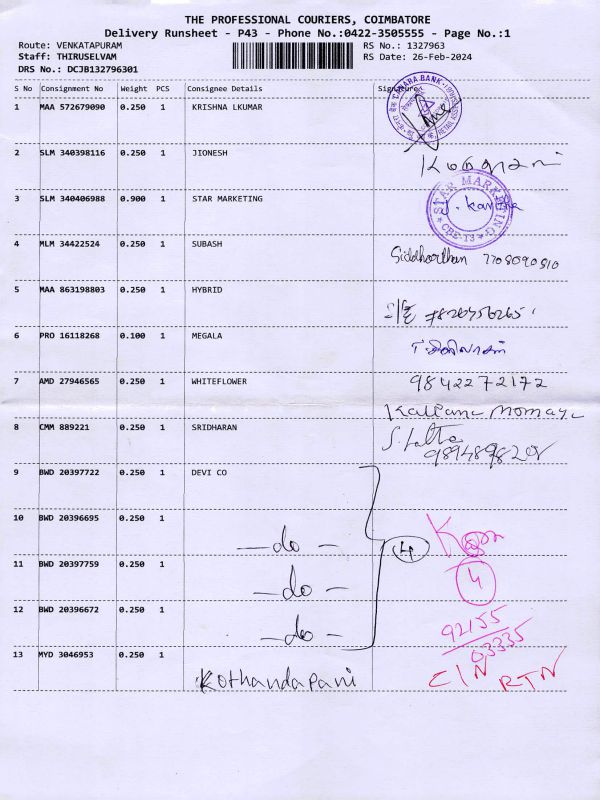 THE PROFESSIONAL COURIERS, COIMBATORE
Delivery Runsheet - P43 - Phone No.:0422-3505555 - Page No.:1
Route: VENKATAPURAM
Staff: THIRUSELVAM
DRS No.: DCJB132796301
RS No.: 1327963
RS Date: 26-Feb-2024
S No Consignment No Weight PCS Consignee Details Signature
1 MAA 572679090 0.250 1 KRISHNA LKUMAR
CANARA BANK
2 SLM 340398116 0.250 1 JIONESH
3 SLM 340406988 0.900 1 STAR MARKETING
STAR MARKETING
CBE-13
4 MLM 34422524 0.250 1 SUBASH Siddharthan 7708090810
5 MAA 863198803 0.250 1 HYBRID
6 PRO 16118268 0.100 1 MEGALA
7 AMD 27946565 0.250 1 WHITEFLOWER 9842272172
8 CMM 889221 0.250 1 SRIDHARAN S. Latha
9 BWD 20397722 0.250 1 DEVI CO
10 BWD 20396695 0.250 1 —do— 4
11 BWD 20397759 0.250 1 —do— 4
12 BWD 20396672 0.250 1 —do— 92155
03335
13 MYD 3046953 0.250 1 Kothandapani RTN